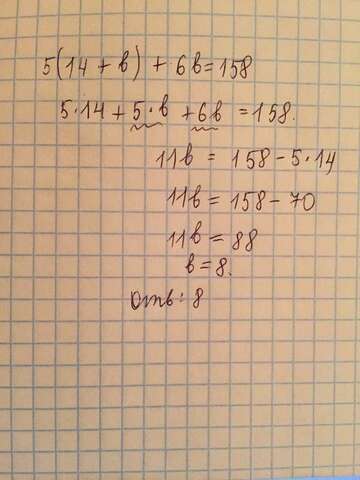 5(14 + в) + 6в = 158
5·14 + 5·в + 6в = 158.
11в = 158 - 5·14
11в = 158 - 70
11в = 88
в = 8.
Отв: 8